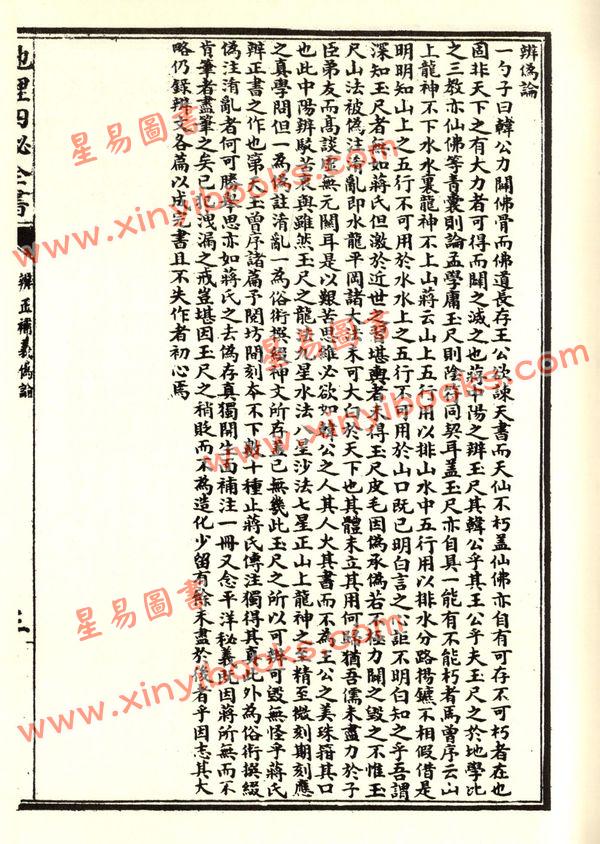 辨僞論
一勺子曰韓公力闢佛骨而佛道長存王公欲諫天書而天仙不朽蓋仙佛亦自有可存不可朽者在也
固非天下之有大力者可得而闢之滅之也蔣中陽之辨玉尺其韓公乎其王公乎夫玉尺之於地學比
之三教亦仙佛等青囊則論孟學庸玉尺則陰符同契耳蓋玉尺亦自具一能有不能朽者焉曾序云山
上龍神不下水水裏龍神不上山蔣云山上五行用以排山水中五行用以排水分路揚鑣不相假借是
明明知山上之五行不可用於水水上之五行不可用於山口既已明白言之心詎不明白知之乎吾謂
深知玉尺者無如蔣氏但激於近世之習堪輿者未得玉尺皮毛因偽承偽若不極力闢之毀之不惟玉
尺山法被偽注淆亂即水龍平岡諸大法未可大白於天下也其體未立其用何歸猶吾儒未盡力於子
臣弟友而高談虛無元闕耳是以艱苦思維必欲如韓公之人其人火其書而不為王公之美珠箝其口
也此中陽辨駁苦衷與雖然玉尺之龍法九星水法八星沙法七星正山上龍神之至精至微刻期刻應
之真學問但一為偽註淆亂一為俗術撰綴神文所存蓋已無幾此玉尺之所以可辨可毀無怪乎蔣氏
辨正書之作也第天玉曾序諸篇予閱坊間刻本不下數十種止蔣氏傳注獨得其真此外為俗術撰綴
偽注淆亂者何可勝舉思亦如蔣氏之去偽存真獨開生面補注一冊又念平洋秘義此因蔣所無而不
肯筆者盡筆之矣已犯洩漏之戒豈堪因玉尺之稍貶而不為造化少留有餘未盡於後者乎因志其大
略仍錄辨文各篇以成完書且不失作者初心焉
地理四秘全書
辨正補義僞論
三
星易圖書
www.xinyibooks.com
星易圖書
www.xinyibooks.com
星易圖書
www.xinyibooks.com